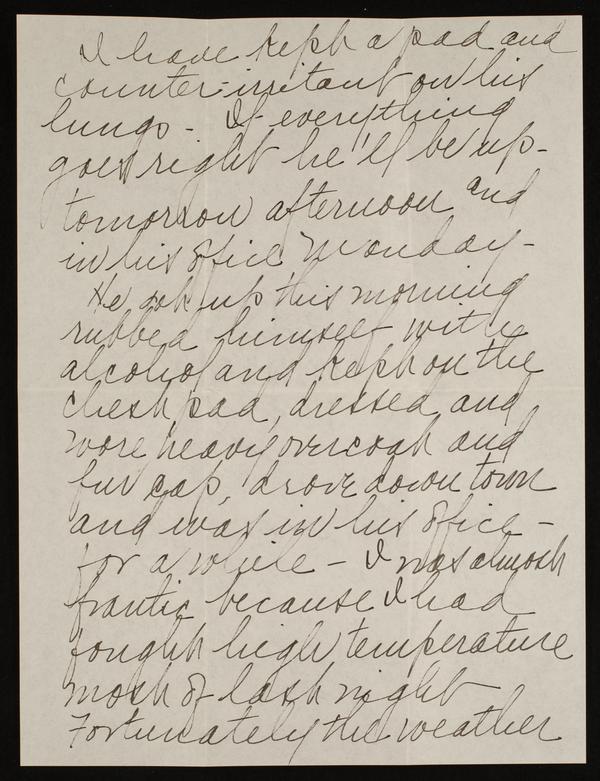 I have kept a pad and
counter-irritant on his
lungs - If everything
goes right he'll be up -
tomorrow afternoon and
in his office Monday -
He got up this morning
rubbed himself with
alcohol and kept on the
chest pad, dressed and
wore heavy overcoat and
fur cap, drove down town
and was in his office -
for a while - I was almost
frantic because I had
fought high temperature
most of last night
Fortunately the weather